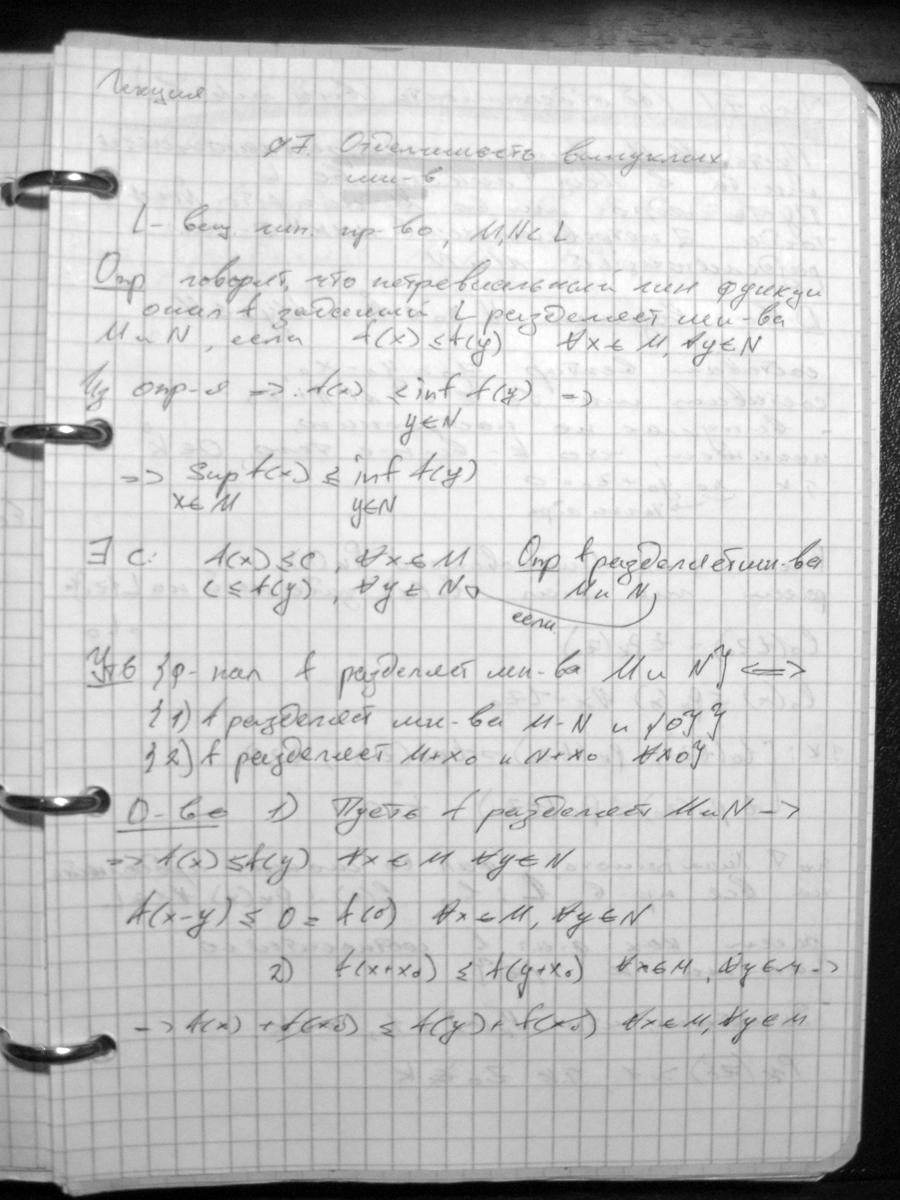 Лекция
§7. Отделимость выпуклых
мн-в
L - вещ. лин. пр-во, M,N⊂L
Опр говорят, что нетривиальный лин функци
онал f заданный L разделяет мн-ва
M и N, если f(x) ≤ f(y) ∀x∈M, ∀y∈N
Из опр-я => f(x) ≤ inf f(y) =>
y∈N
=> sup f(x) ≤ inf f(y)
x∈M y∈N
∃ c: f(x) ≤ c, ∀x∈M Опр f разделяет мн-ва
c ≤ f(y), ∀y∈N M и N,
если
Утв {ф-нал f разделяет мн-ва M и N} <=>
{1) f разделяет мн-ва M-N и {0}}
{2) f разделяет M+x₀ и N+x₀ ∀x₀}
Д-во 1) Пусть f разделяет M и N ->
=> f(x) ≤ f(y) ∀x∈M ∀y∈N
f(x-y) ≤ 0 = f(0) ∀x∈M, ∀y∈N
2) f(x+x₀) ≤ f(y+x₀) ∀x∈M, ∀y∈M ->
-> f(x) + f(x₀) ≤ f(y) + f(x₀) ∀x∈M, ∀y∈M